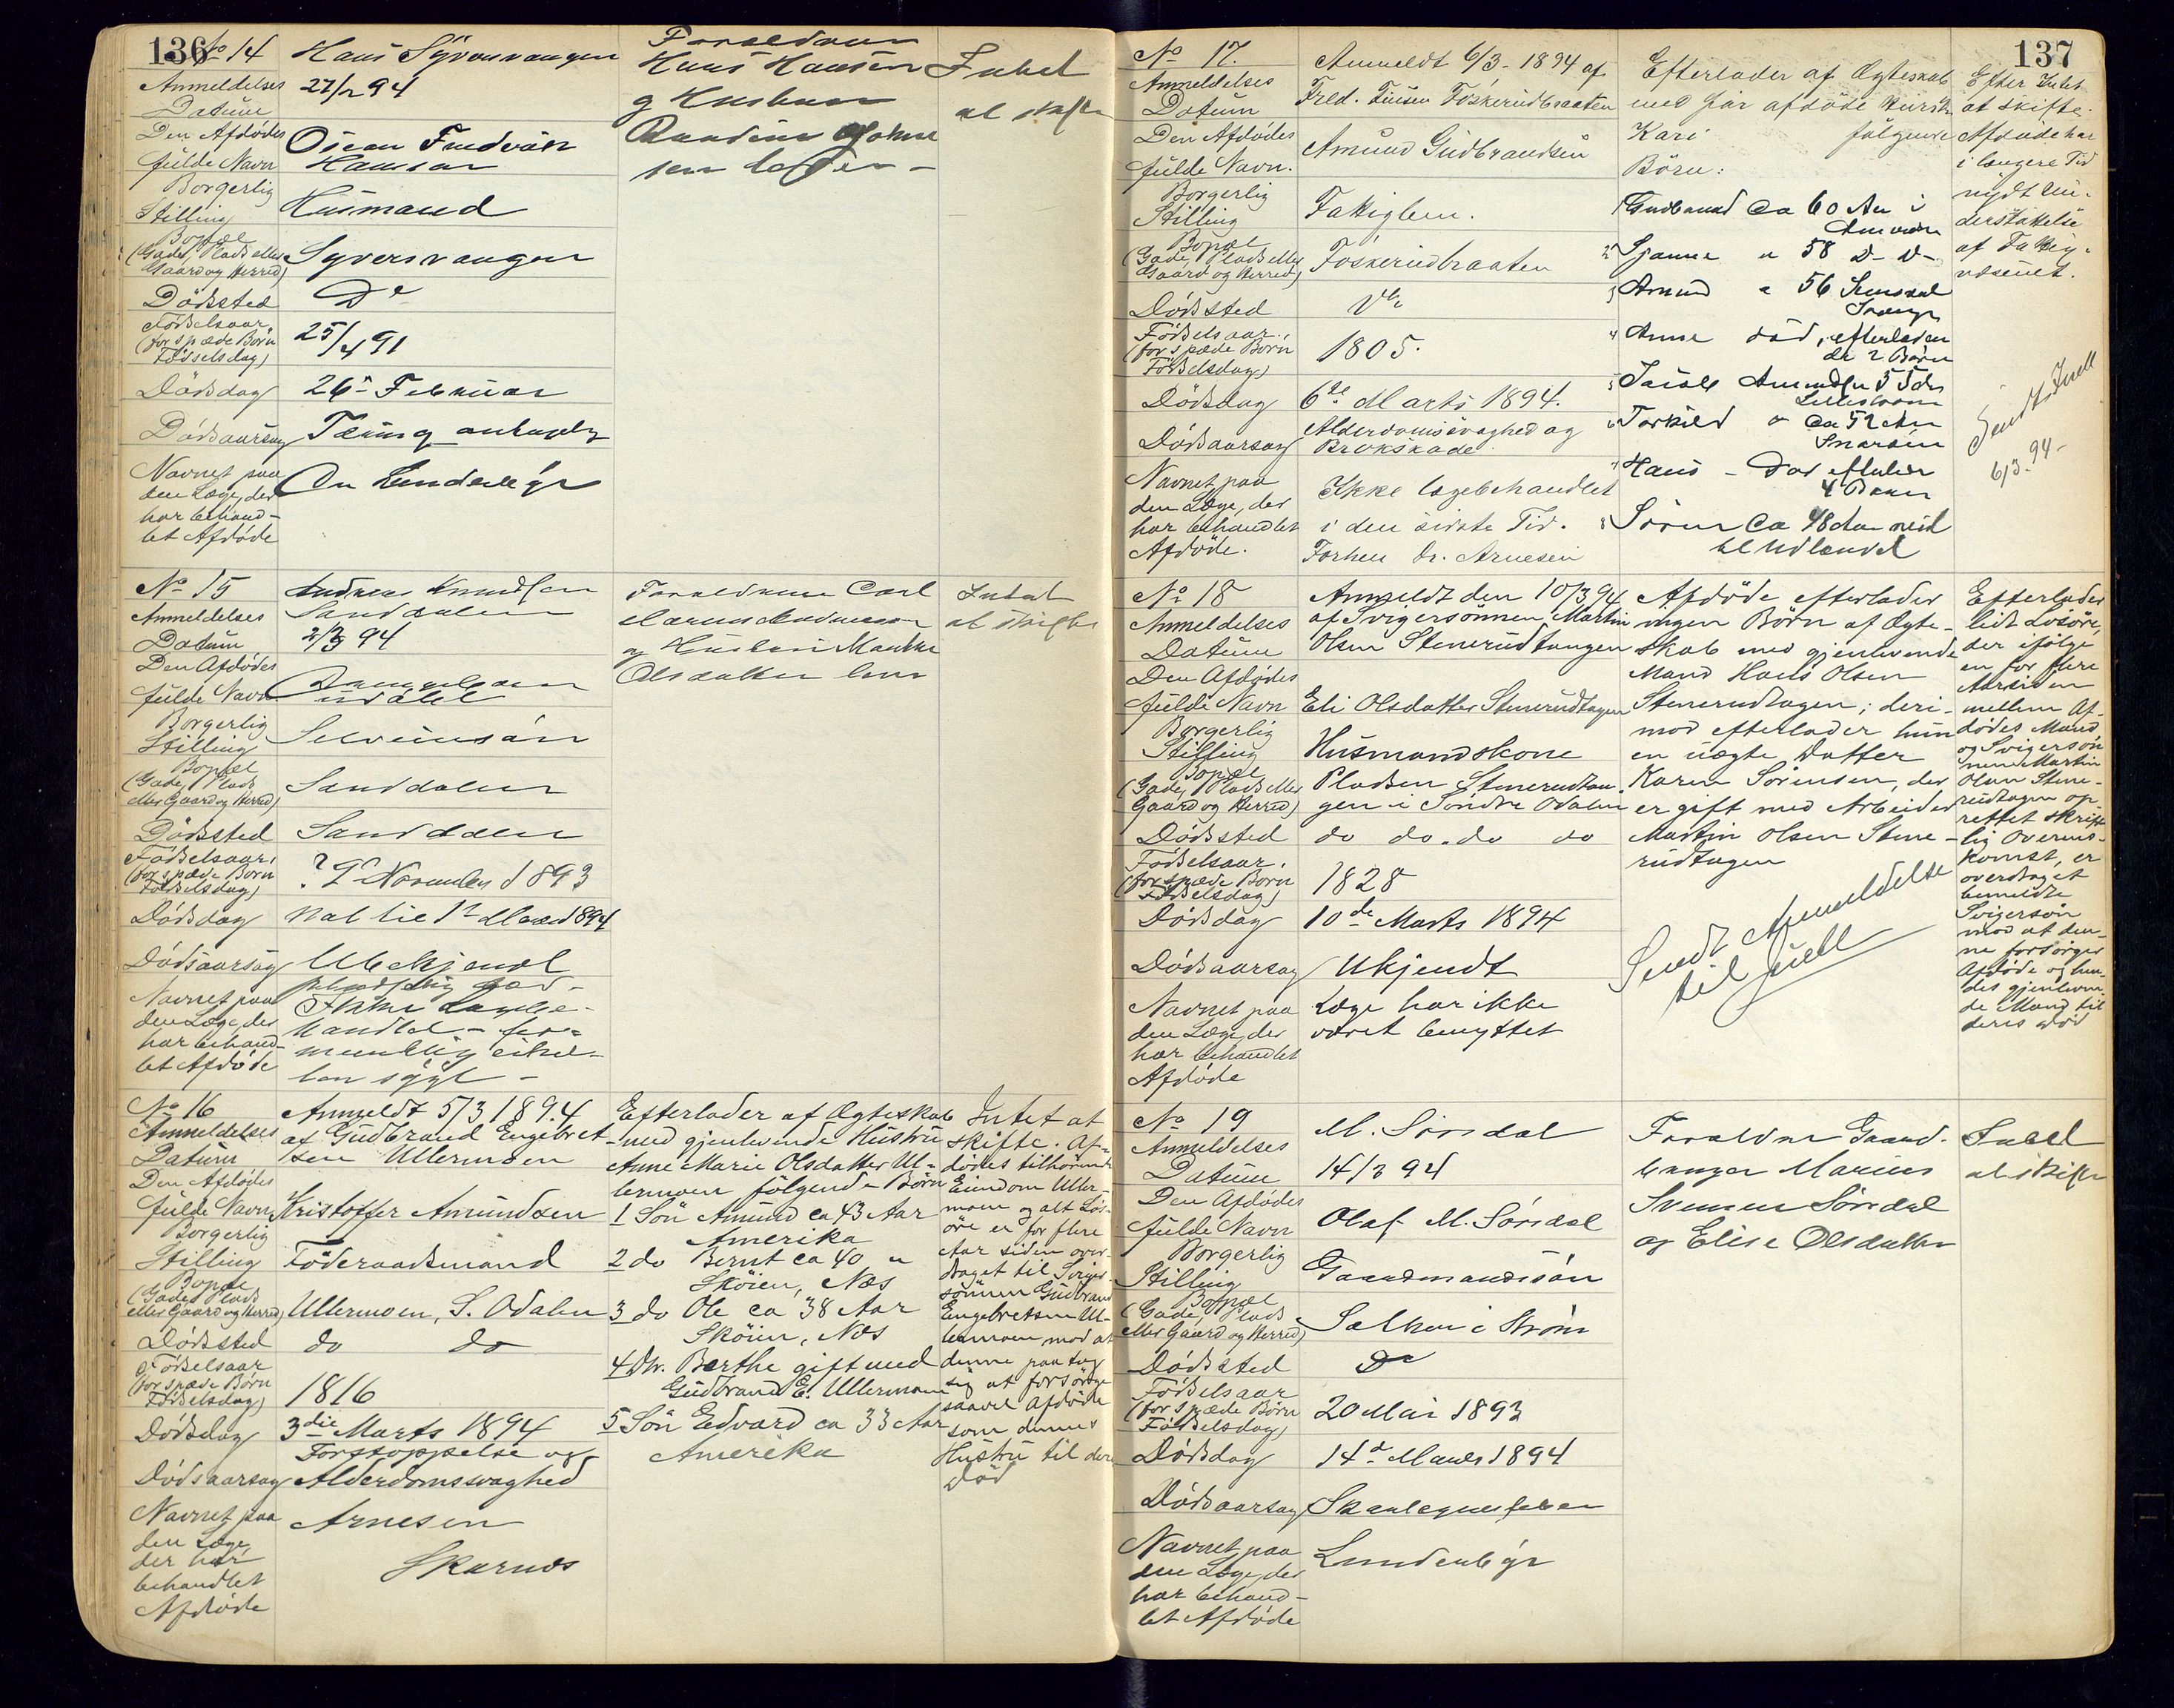 136
No 14
Hans Syversvangen
Anmeldelses
Datum
27/2 94
Den Afdødes
fulde Navn
Oscar Fredvan
Hansen
Borgerlig
Stilling
Husmand
Bopæl
(Gade, Plads eller
Gaard og Herred)
Syversvangen
Dødssted
Do
Fødselsaar,
(for spæde Børn
Fødselsdag)
25/4 91
Dødsdag
26de Februar
Dødsaarsag
Navnet paa
den Læge, der
har behand-
let Afdøde
Forældrene
Hans Hansen
og Hustru
lever
Intet
at skifte
No 15
Andreas Knudsen
Sanddalen
Anmeldelses
Datum
2/3 94
Den Afdødes
fulde Navn
Borgerlig
Stilling
Bopæl
(Gade, Plads
eller Gaard og Herred)
Sanddalen
Dødssted
Sanddalen
Fødselsaar,
(for spæde Børn
Fødselsdag)
November 1893
Dødsdag
Nat til 1te Marts 1894
Dødsaarsag
Ubekjendt
Navnet paa
den Læge, der
har behand-
let Afdøde
Ikke Lægebe-
handlet
søgt
Forældrene Carl
og Hustru Marthe
Olsdatter lever
Intet
at skifte
No 16
Anmeldelses
Datum
Anmeldt 5/3 1894
af Gudbrand Engebret-
sen Ullermoen
Den Afdødes
fulde Navn
Kristoffer Amundsen
Borgerlig
Stilling
Föderaadsmand
Bopæl
(Gade, Plads
eller Gaard og Herred)
Ullermoen, S. Odalen
Dødssted
do do
Fødselsaar
(for spæde Børn
Fødselsdag)
1816
Dødsdag
3die Marts 1894
Dødsaarsag
Forstoppelse og
Alderdomssvaghed
Navnet paa
den Læge,
der har
behandlet
Afdøde
Arnesen
Skarnes
Efterlader af Ægteskab
med gjenlevende Hustru
Anne Marie Olsdatter Ul-
lermoen følgende Børn
1 Sön Amund ca 43 Aar
Amerika
2 do Bernt ca 40 "
Sköien, Næs
3 do Ole ca 38 Aar
Sköien, Næs
4 Dtr. Berthe gift med
Gudbrand E. Ullermoen
5 Sön Edvard ca 33 Aar
Amerika
Intet at
skifte. Af-
dødes tilhørende
Eiendom Uller-
moen og alt Lös-
öre er for flere
Aar siden over-
draget til Sviger-
sönnen Gudbrand
Engebretsen Ul-
lermoen mod at
denne paa tog
sig at forsörge
saavel Afdøde
som dennes
Hustru til deres
Död
137
No 17.
Anmeldelses
Datum
Anmeldt 6/3 1894 af
Fred. Foskerudbraaten
Den Afdødes
fulde Navn.
Amund Gudbrandsen
Borgerlig
Stilling
Fattiglem.
Bopæl
(Gade, Plads eller
Gaard og Herred)
Foskerudbraaten
Dødssted
do
Fødselsaar,
(for spæde Børn
Fødselsdag)
1805.
Dødsdag
6te Marts 1894.
Dødsaarsag
Alderdomssvaghed og
Brokskade
Navnet paa
den Læge, der
har behandlet
Afdøde.
Ikke lægebehandlet
i den sidste Tid.
Forhen Dr. Arnesen
Efterlader af Ægteskab
med før afdøde Hustru
Kari følgende
Börn:
1 Gudbrand ca 60 Aar i
Amerika
2 " 58 D- D-
3 Amund " 56
4 Anne död, efterlader
2 Børn
5 55
6 Torkild " ca 52 Aar
7 Hans - Död efterlader
4 Børn
8 Sören ca 48 Aar reist
til Udlandet
Efter Intet
at skifte.
Afdøde har
i længere Tid
nydt Un-
derstøttelse
af Fattig-
væsenet.
Sendt Juell
6/3-94-
No 18
Anmeldelses
Datum
Anmeldt den 10/3 94
af Svigersönnen Martin
Olsen Stenerudtangen
Den Afdødes
fulde Navn
Eli Olsdatter Stenerudtagen
Borgerlig
Stilling
Husmandskone
Bopæl
(Gade, Plads eller
Gaard og Herred)
Pladsen Stenerudtan-
gen i Söndre Odalen
Dødssted
do do. do do
Fødselsaar.
(for spæde Børn
Fødselsdag)
1828
Dødsdag
10de Marts 1894
Dødsaarsag
Ukjendt
Navnet paa
den Læge, der
har behandlet
Afdøde
Læge har ikke
været benyttet
Afdöde efterlader
ingen Börn af Ægte-
skab med gjenlevende
Mand Hans Olsen
Stenerudtagen; deri-
mod efterlader hun
en uægte Datter
Karen Sörensen, der
er gift med Arbeider
Martin Olsen Stene-
rudtagen
Sendt Anmeldelse
til Juell
Efterlader
lidt Lösöre,
der ifölge
en for flere
Aar siden
mellem Af-
dødes Mand
og Svigersön-
nen Martin
Olsen Stene-
rudtagen op-
rettet skrift-
lig Overens-
komst, er
overdraget
bemeldte
Svigersön
mod at den-
ne forsörger
Afdöde og hen-
des gjenleven-
de Mand til
deres Död
No 19
M. Sörsdal
Anmeldelses
Datum
14/3 94
Den Afdødes
fulde Navn
Olaf M. Sörsdal
Borgerlig
Stilling
Gaardmandssön
Bopæl
(Gade, Plads
eller Gaard og Herred)
i Ström
Dødssted
Do
Fødselsaar
(for spæde Børn
Fødselsdag)
20 Mai 1893
Dødsdag
14de Marts 1894
Dødsaarsag
Skarlagensfeber
Navnet paa
den Læge, der
har behand-
let Afdøde
Forældre Gaard-
bruger Marius
Svensen Sörsdal
og Elise Olsdatter
Intet
at skifte